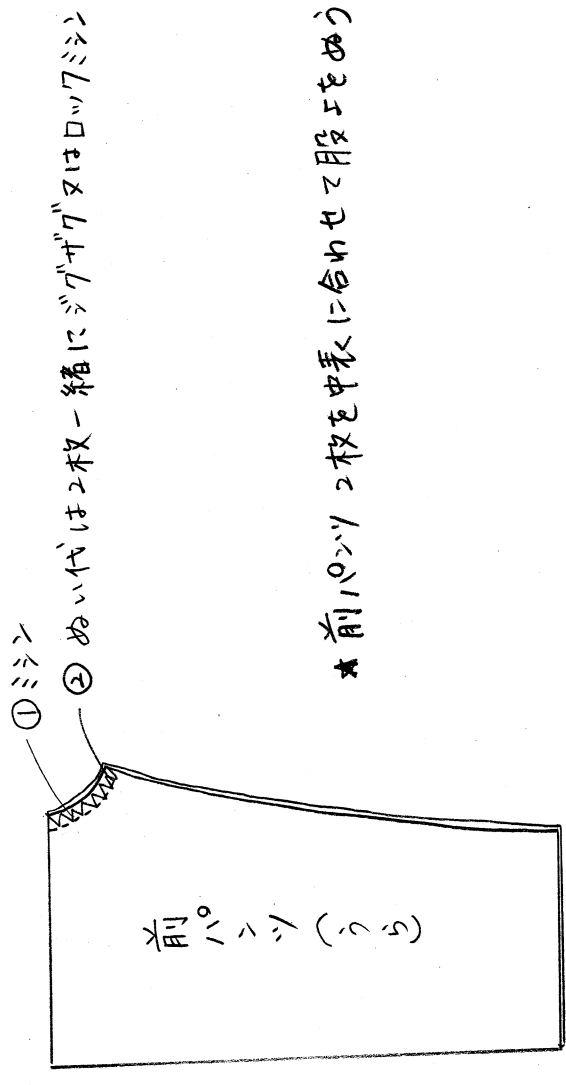 ①ミシン
②ぬい代は2枚一緒にジグザグ又はロックミシン
★前パンツ2枚を中表に合わせて股上をぬう
前パンツ(うら)